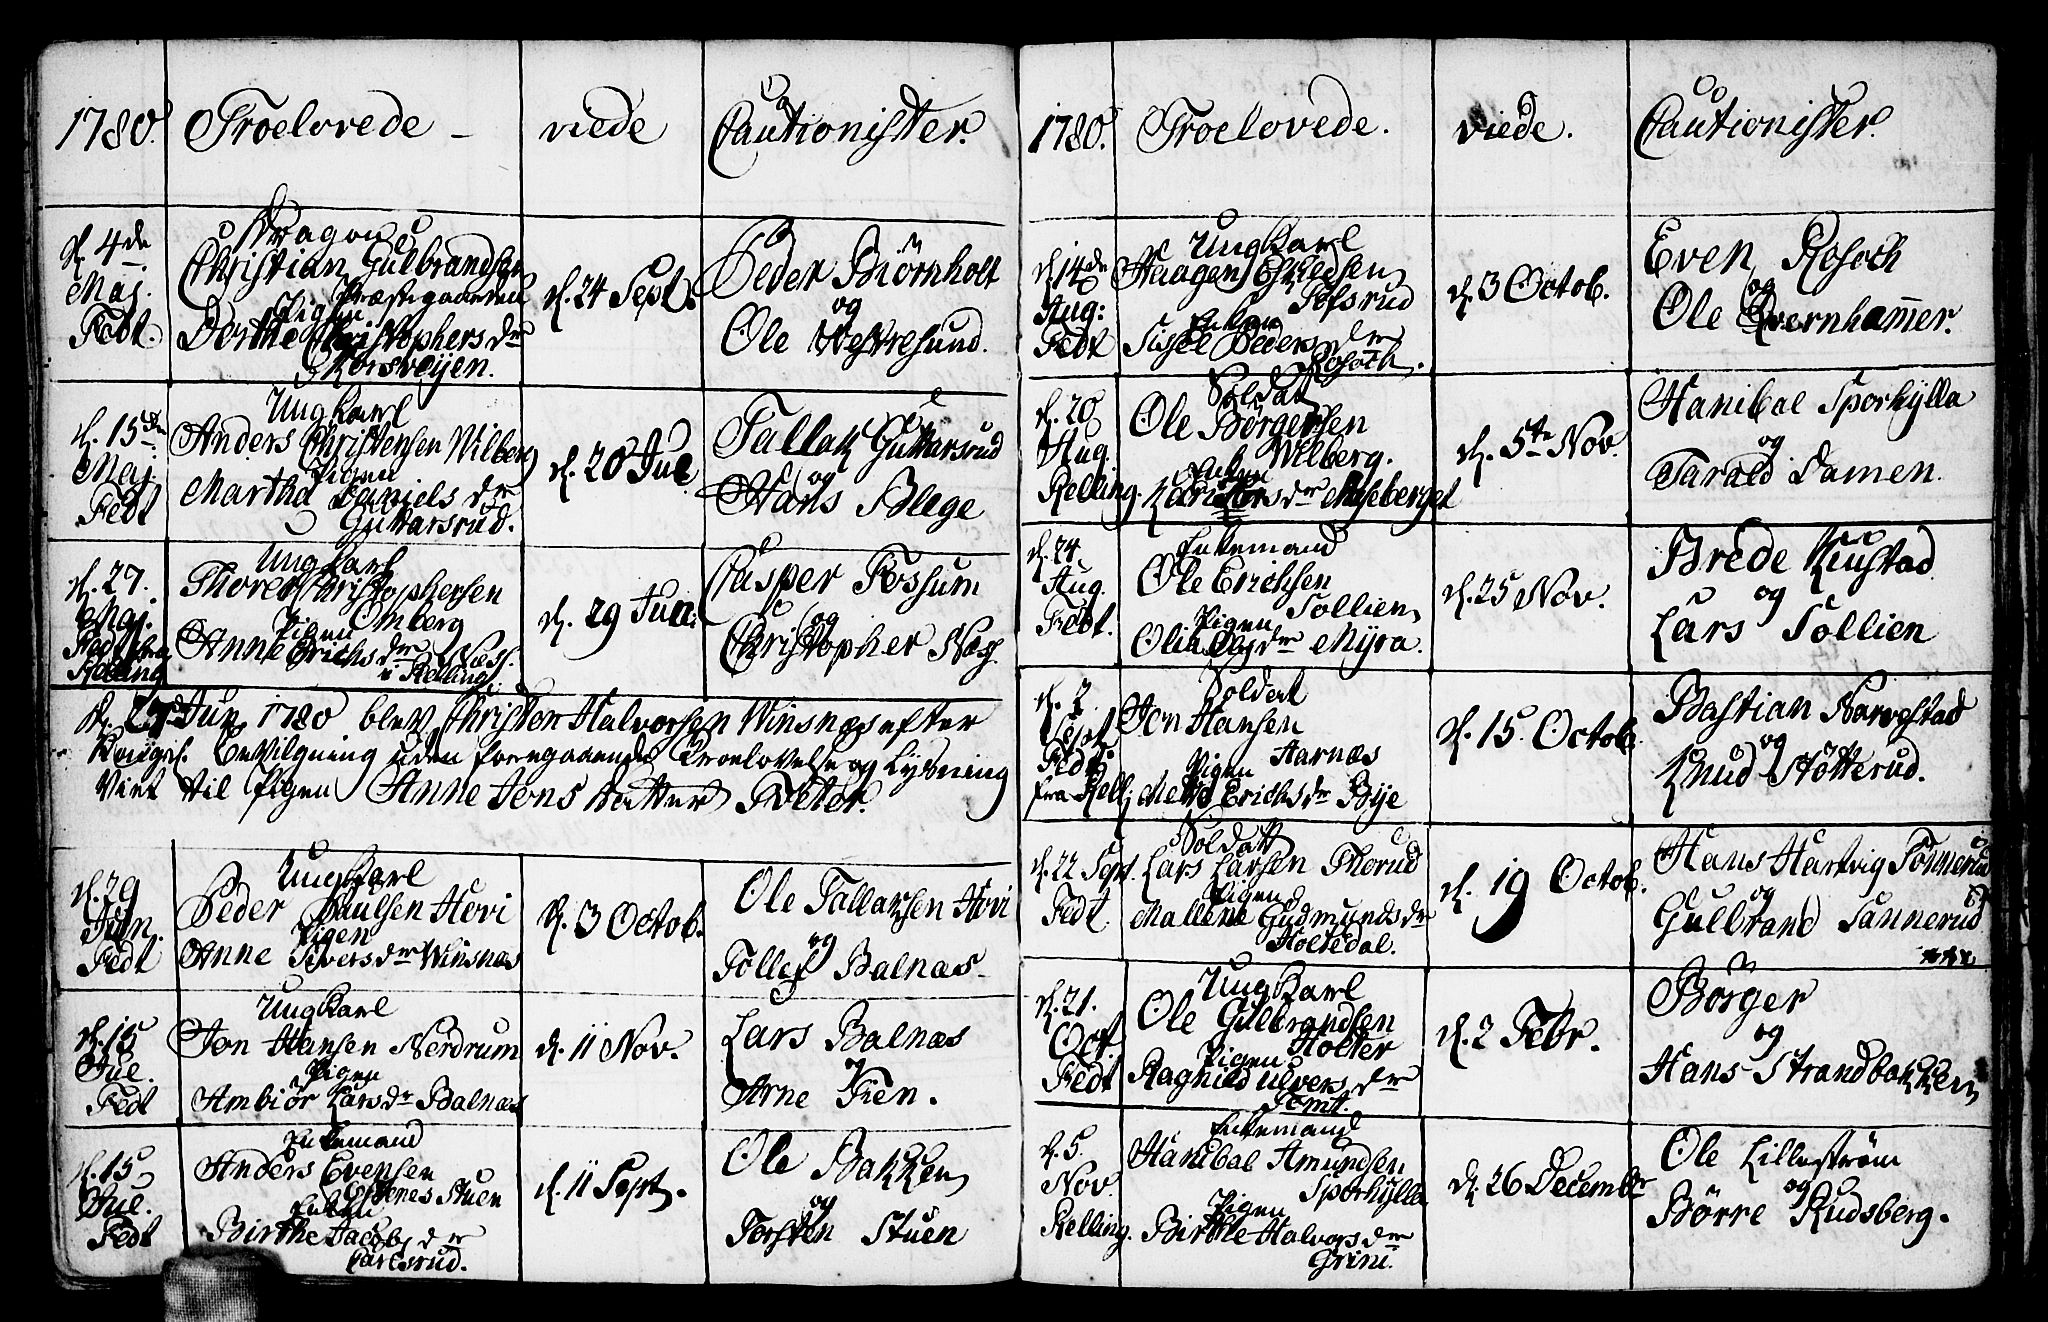 1780. Troelovede – viede Cautionister.
d. 4de
Maj.
Fedt.
Dragon
Christian Gulbrandsen
Præstegaarden
Pigen
Dorthe Christophers dr
Korsveijen.
d. 24 Sept.
Peder Biørnholt
og
Ole Vestresund.
d. 15de
Maj.
Fedt
Ung Karl
Anders Christensen Wilberg
Pigen
Martha Daniels dr
Guttarsrud.
d. 20 Jul
Tallak Guttarsrud
og
Hans Blege
d. 27.
Maj.
Fedt fra
Relling
Ung Karl
Thore Christophersen
Omberg
Pigen
Anne Erichs dr Næss.
i Relling.
d. 29 Jun.
Casper Fossum
og
Christopher Næs
d. 27 Jun. 1780 blev Christen Halvorsen Winsnæs efter
Kongel. bevilgning uden foregaaende Troelovelse og Lysning
Viet til Pigen Anne Jens datter Tveter.
d. 29
Jun.
Fedt
Ung Karl
Peder Paulsen Hovi
Pigen
Anne Sivers dr Winsnæs
d. 3 Octob.
Ole Tallaksen Hovi
og
Tollef Balnæs
d. 15
Jul.
Fedt
Ung Karl
Jon Hansen Nerdrum
Pigen
Ambiør Lars dr Balnæs
d. 11 Nov.
Lars Balnæs
og
Arne Tien.
d. 15
Jul.
Fedt
Enkemand
Anders Evensen
Stuen
Enken
Birthe Jacobs dr
Carlsrud.
d. 11 Sept.
Ole Bakken
og
Torsten Stuen
1780. Troelovede. viede. Cautionister.
d. 14de
Aug:
Fedt
Ung Karl
Haagen Eskildsen
Tofsrud
Enken
Sisel Peders dr
Rosoch.
d. 3 Octob.
Even Rosoch
og
Ole Qvernhammer.
d. 20
Aug.
Relling.
Soldat
Ole Børgersen
Wilberg.
Enken
dr Møseberget
d. 5te Nov.
Hanibal Sporkylla
og
Tarald Damen.
d. 24
Aug.
Fedt.
Enkemand
Ole Erichsen
Tollien
Pigen
Olia Ols dr Myra.
d. 25 Nov.
Brede Kiustad
og
Lars Tollien
d. 2
Sept
Fedt
fra Rell:
Soldat
Jon Hansen
Aarnæs
Pigen
Mette Erichs dr Bije
d. 15. Octob.
Bastian Narvestad
og
Knud Støtterud.
d. 22 Sept.
Fedt.
Soldat
Lars Larsen Thorud
Pigen
Mallene Gudmunds dr
Holtedal.
d. 19 Octob.
Hans Hartvig Tonnerud
og
Gulbrand Sannerud
d. 21.
Oct
Fedt
Ung Karl
Ole Gulbrandsen
Holter
Pigen
Raghild Ulvers dr
Tomt.
d. 2 Febr.
Børger
og
Hans Strandbakken
d. 5
Nov.
Relling.
Enkemand
Hanibal Amundsen
Sporkylla
Pigen
Birthe Halvors dr
Grini.
d. 26 Decembr
Ole Lillestrøm
og
Børre Rudsberg.